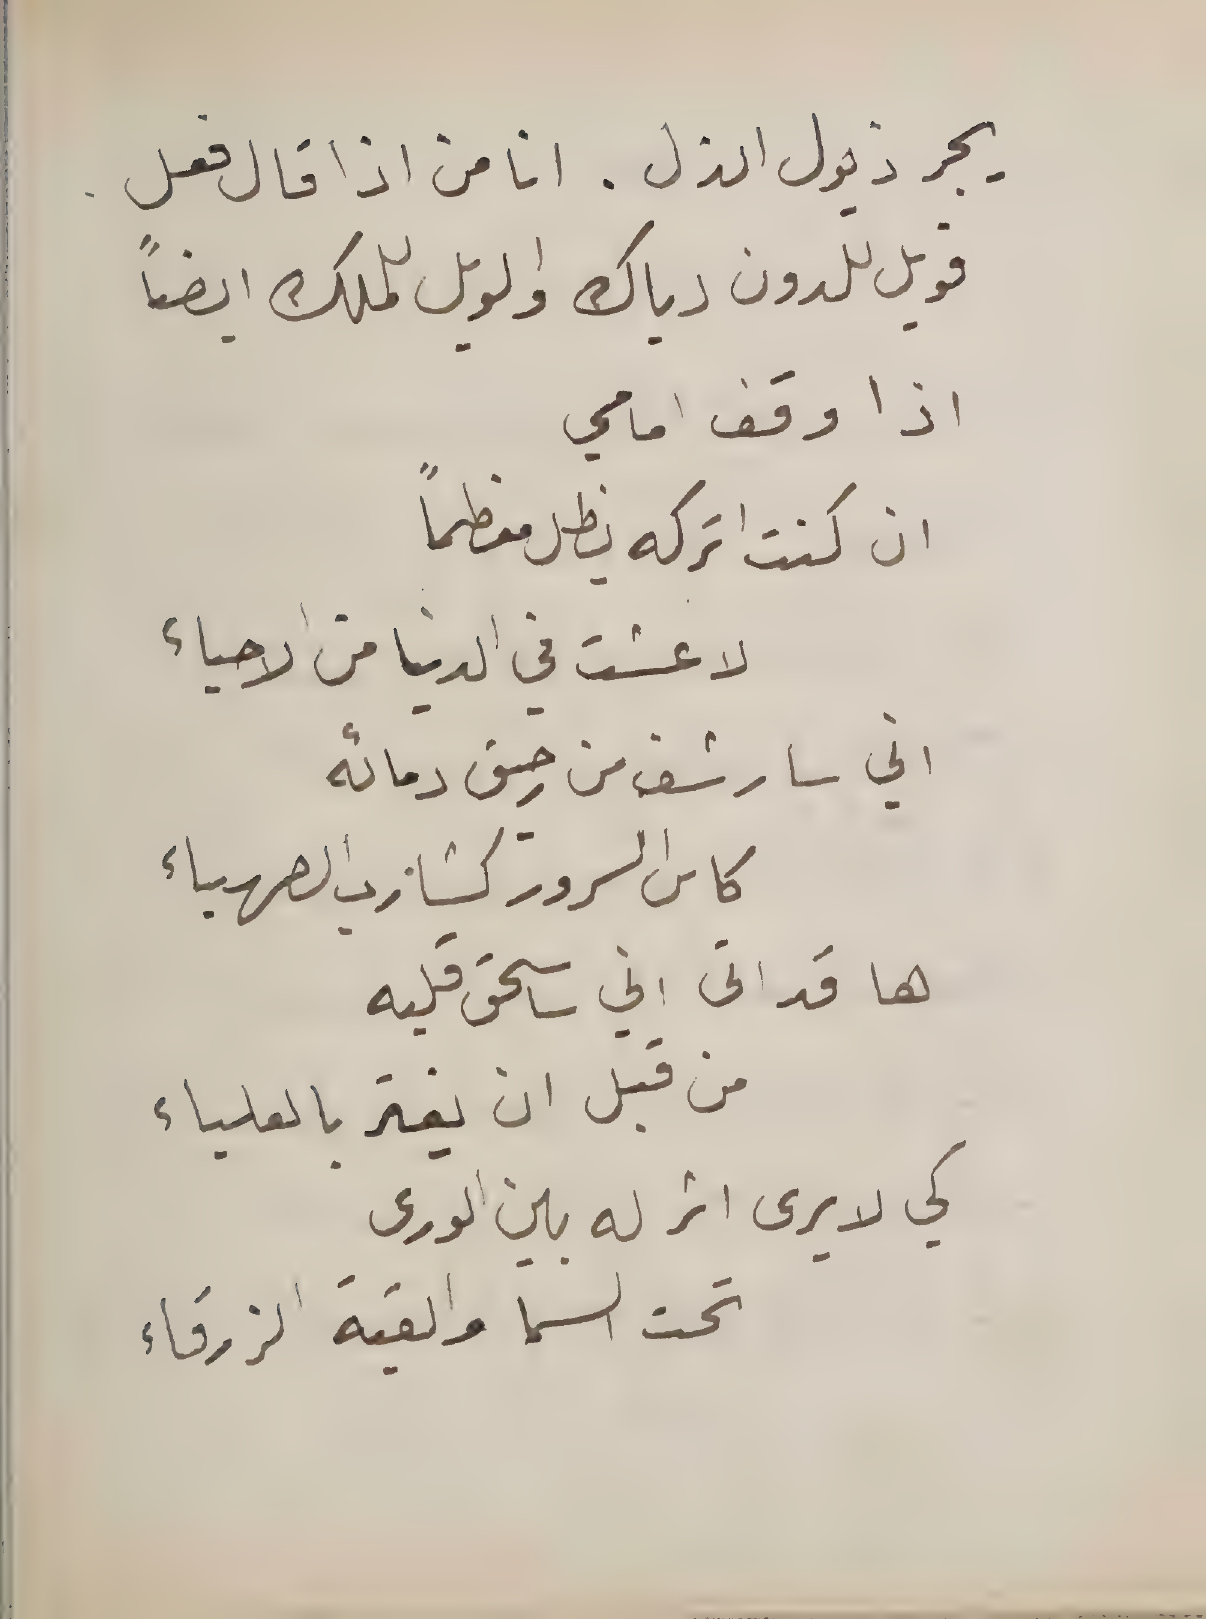 يجر ذيول الذل . انا من اذا قال فعل .
فويل للدون دياك والويل للملك ايضاً
اذا وقف امامي
ان كنت اتركه يظل معظماً
لا عشت في الدنيا من الاحياء
اني سارشف من رحيق دمائه
كاس السرور كشارب الصهباء
ها قد اتى اني ساسحق قلبه
من قبل ان يغتر بالعلياء
كي لا يرى اثر له بين الورى
تحت السما والقبة الزرقاء